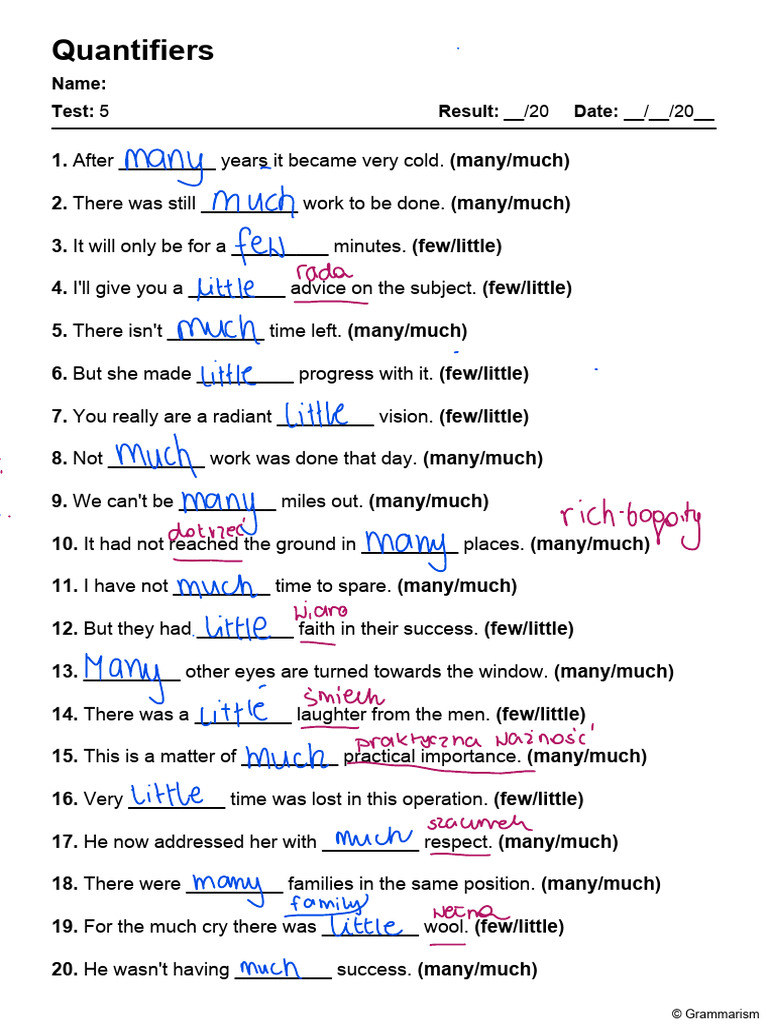 Quantifiers
Name:
Test: 5 Result: __/20 Date: __/__/20__
1. After many years it became very cold. (many/much)
2. There was still much work to be done. (many/much)
3. It will only be for a few minutes. (few/little)
rada
4. I'll give you a little advice on the subject. (few/little)
5. There isn't much time left. (many/much)
6. But she made little progress with it. (few/little)
7. You really are a radiant little vision. (few/little)
8. Not much work was done that day. (many/much)
9. We can't be many miles out. (many/much)
dotrzeć rich-
10. It had not reached the ground in many places. (many/much)
11. I have not much time to spare. (many/much)
wiara
12. But they had little faith in their success. (few/little)
13. Many other eyes are turned towards the window. (many/much)
śmiech
14. There was a little laughter from the men. (few/little)
praktyczna ważność
15. This is a matter of much practical importance. (many/much)
16. Very little time was lost in this operation. (few/little)
szacunek
17. He now addressed her with much respect. (many/much)
18. There were many families in the same position. (many/much)
family wełna
19. For the much cry there was little wool. (few/little)
20. He wasn't having much success. (many/much)
© Grammarism